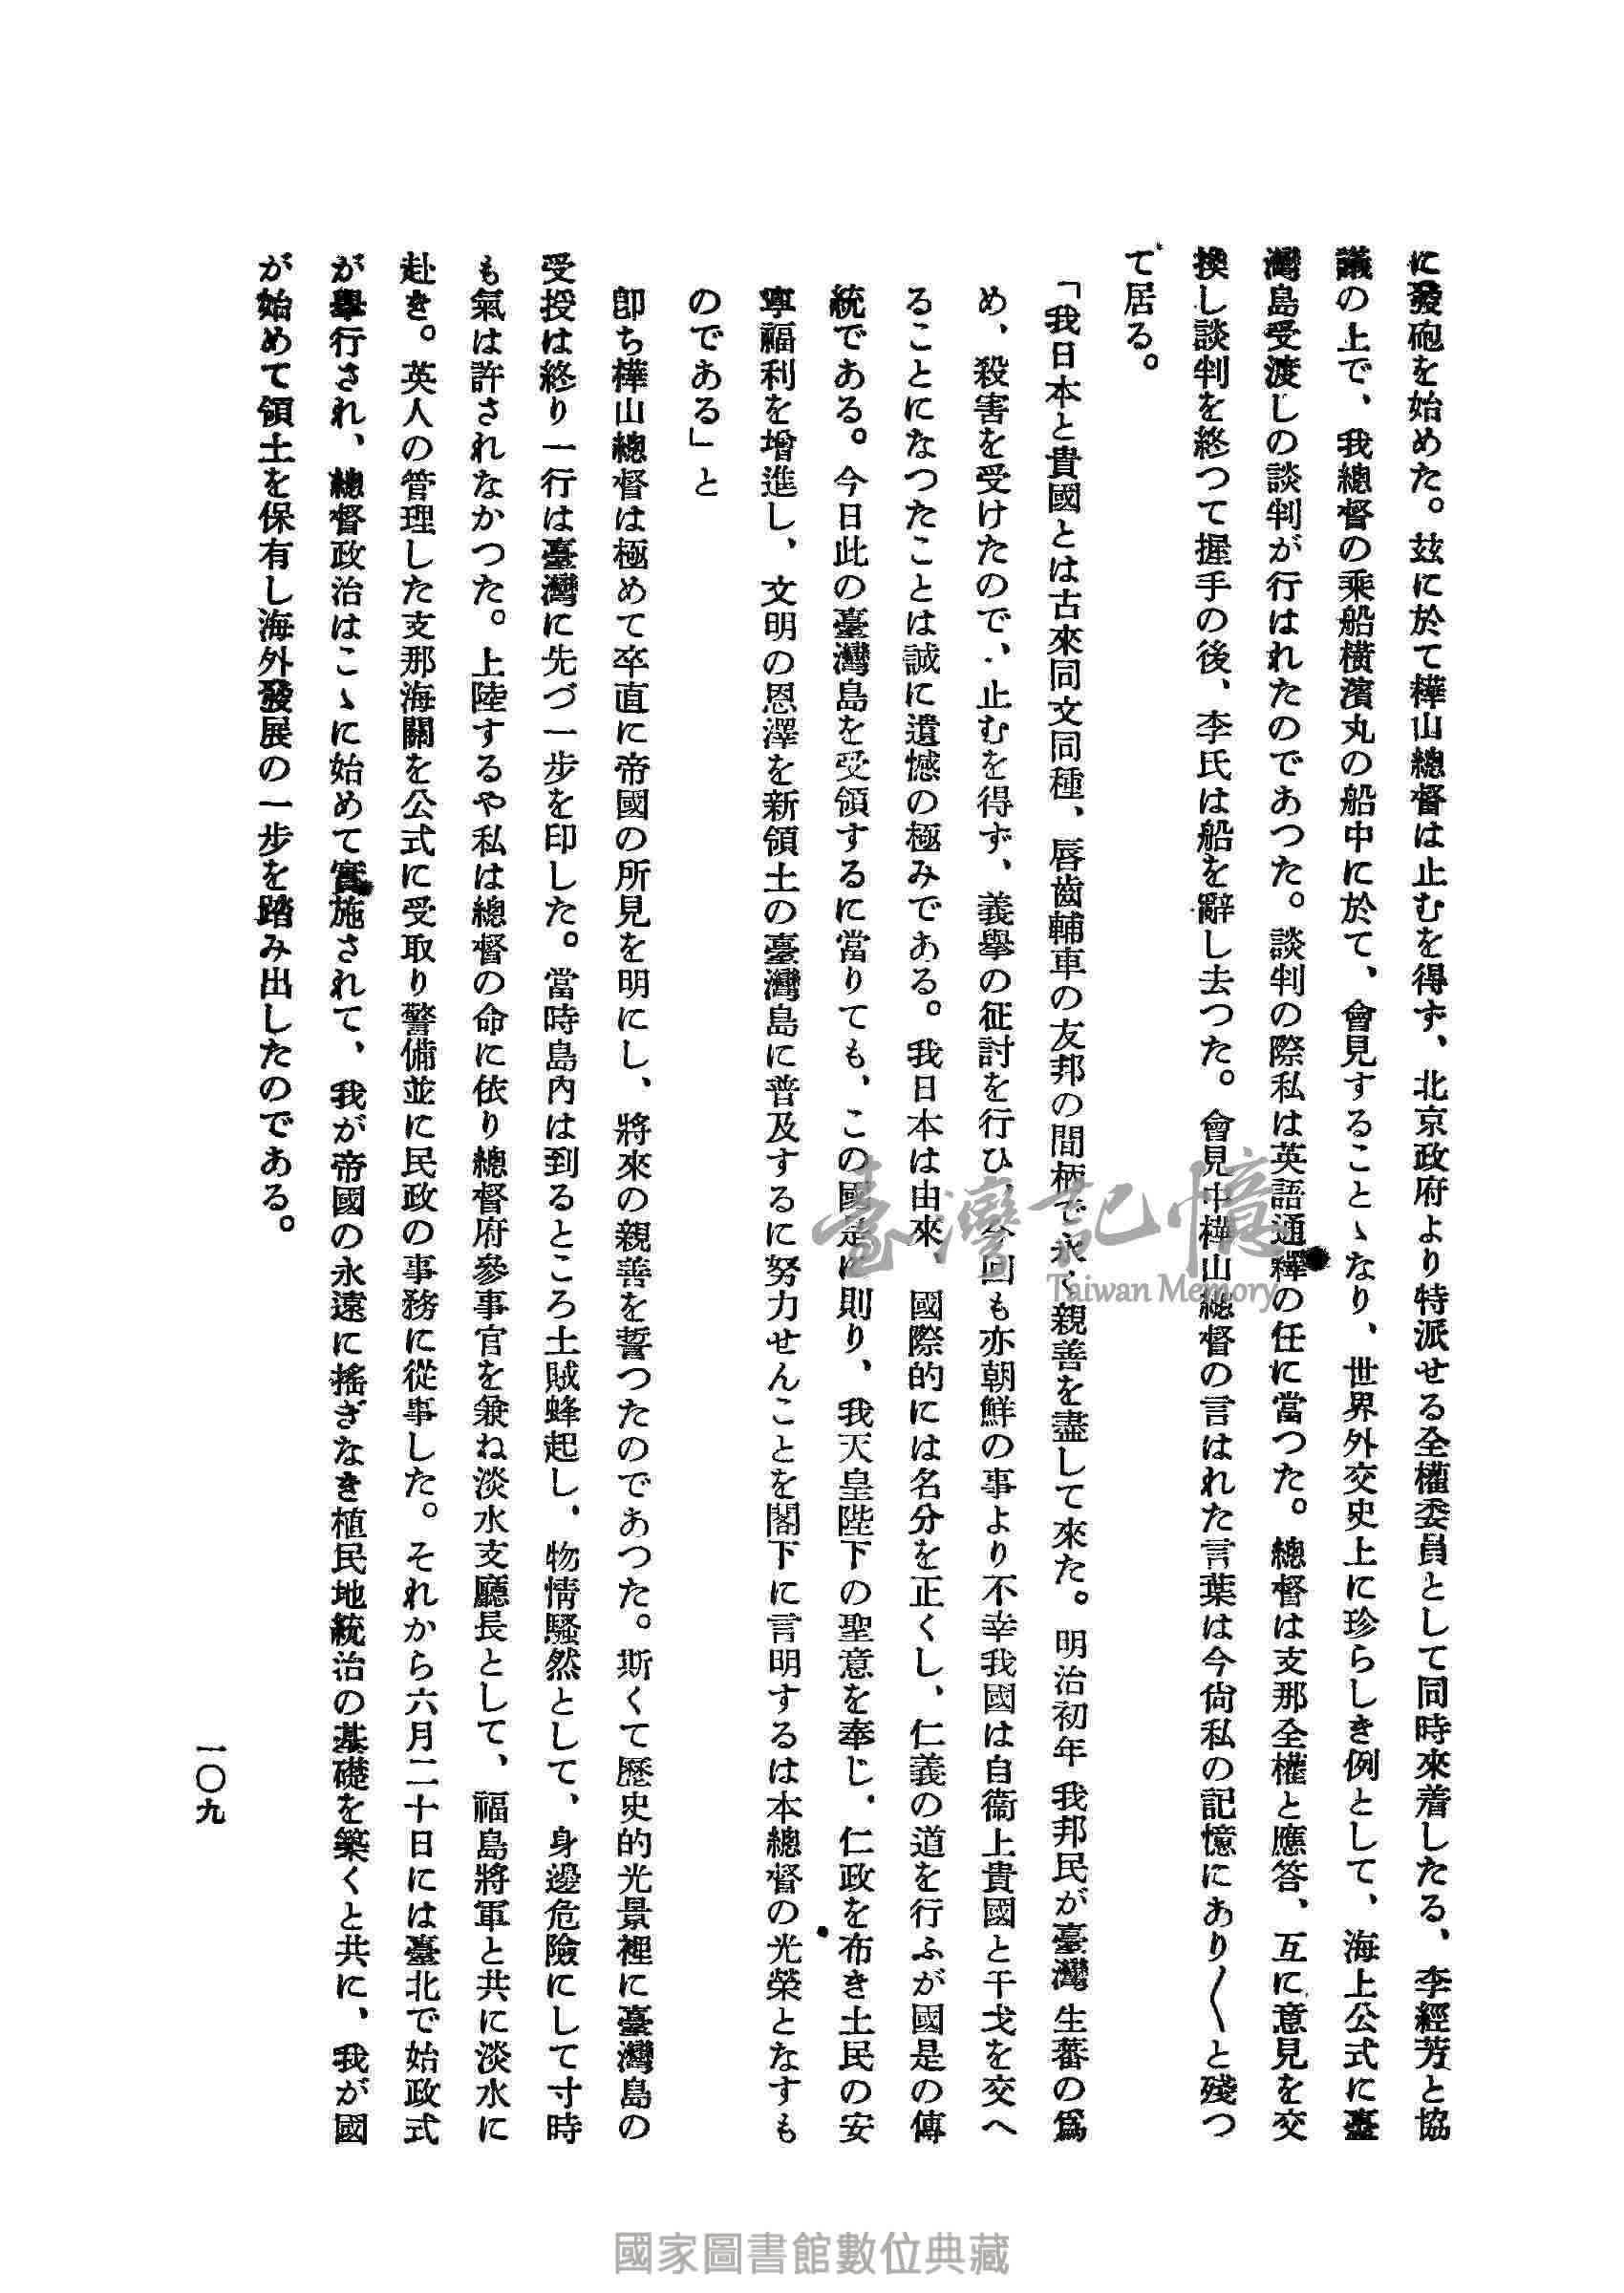 に發砲を始めた。玆に於て樺山總督は止むを得ず、北京政府より特派せる全權委員として同時來着したる、李經芳と協
議の上で、我總督の乘船橫濱丸の船中に於て、會見することゝなり、世界外交史上に珍らしき例として、海上公式に臺
灣島受渡しの談判が行はれたのであつた。談判の際私は英語通譯の任に當つた。總督は支那全權と應答、互に意見を交
換し談判を終つて握手の後、李氏は船を辭し去つた。會見中樺山總督の言はれた言葉は今尙私の記憶にあり〱と殘つ
て居る。
「我日本と貴國とは古來同文同種、唇齒輔車の友邦の間柄で永く親善を盡して來た。明治初年我邦民が臺灣生蕃の爲
め、殺害を受けたので、止むを得ず、義擧の征討を行ひ、今回も亦朝鮮の事より不幸我國は自衞上貴國と干戈を交へ
ることになつたことは誠に遺憾の極みである。我日本は由來、國際的には名分を正くし、仁義の道を行ふが國是の傳
統である。今日此の臺灣島を受領するに當りても、この國是に則り、我天皇陛下の聖意を奉じ、仁政を布き土民の安
寧福利を增進し、文明の恩澤を新領土の臺灣島に普及するに努力せんことを閣下に言明するは本總督の光榮となすも
のである」と
卽ち樺山總督は極めて卒直に帝國の所見を明にし、將來の親善を誓つたのであつた。斯くて歷史的光景裡に臺灣島の
受授は終り一行は臺灣に先づ一步を印した。當時島內は到るところ土賊蜂起し、物情騷然として、身邊危險にして寸時
も氣は許されなかつた。上陸するや私は總督の命に依り總督府參事官を兼ね淡水支廳長として、福島將軍と共に淡水に
赴き。英人の管理した支那海關を公式に受取り警備並に民政の事務に從事した。それから六月二十日には臺北で始政式
が擧行され、總督政治はこゝに始めて實施されて、我が帝國の永遠に搖ざなき植民地統治の基礎を築くと共に、我が國
が始めて領土を保有し海外發展の一步を踏み出したのである。
一〇九
臺灣記憶
Taiwan Memory
國家圖書館數位典藏